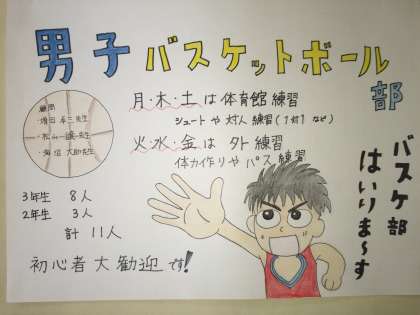 男子バスケットボール部
月・木・土は体育館練習
シュートや対人練習(1対1など)
火・水・金は外練習
体力作りやパス練習
顧問
増田 卓三先生
松山 譲先生
大助先生
3年生 8人
2年生 3人
計 11人
初心者大歓迎です!
バスケ部
はいりま~す